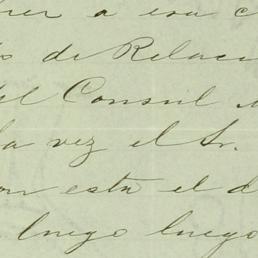 a esa c
de Relac
del Consul
la vez el Sr.
con esta el d
luego luego